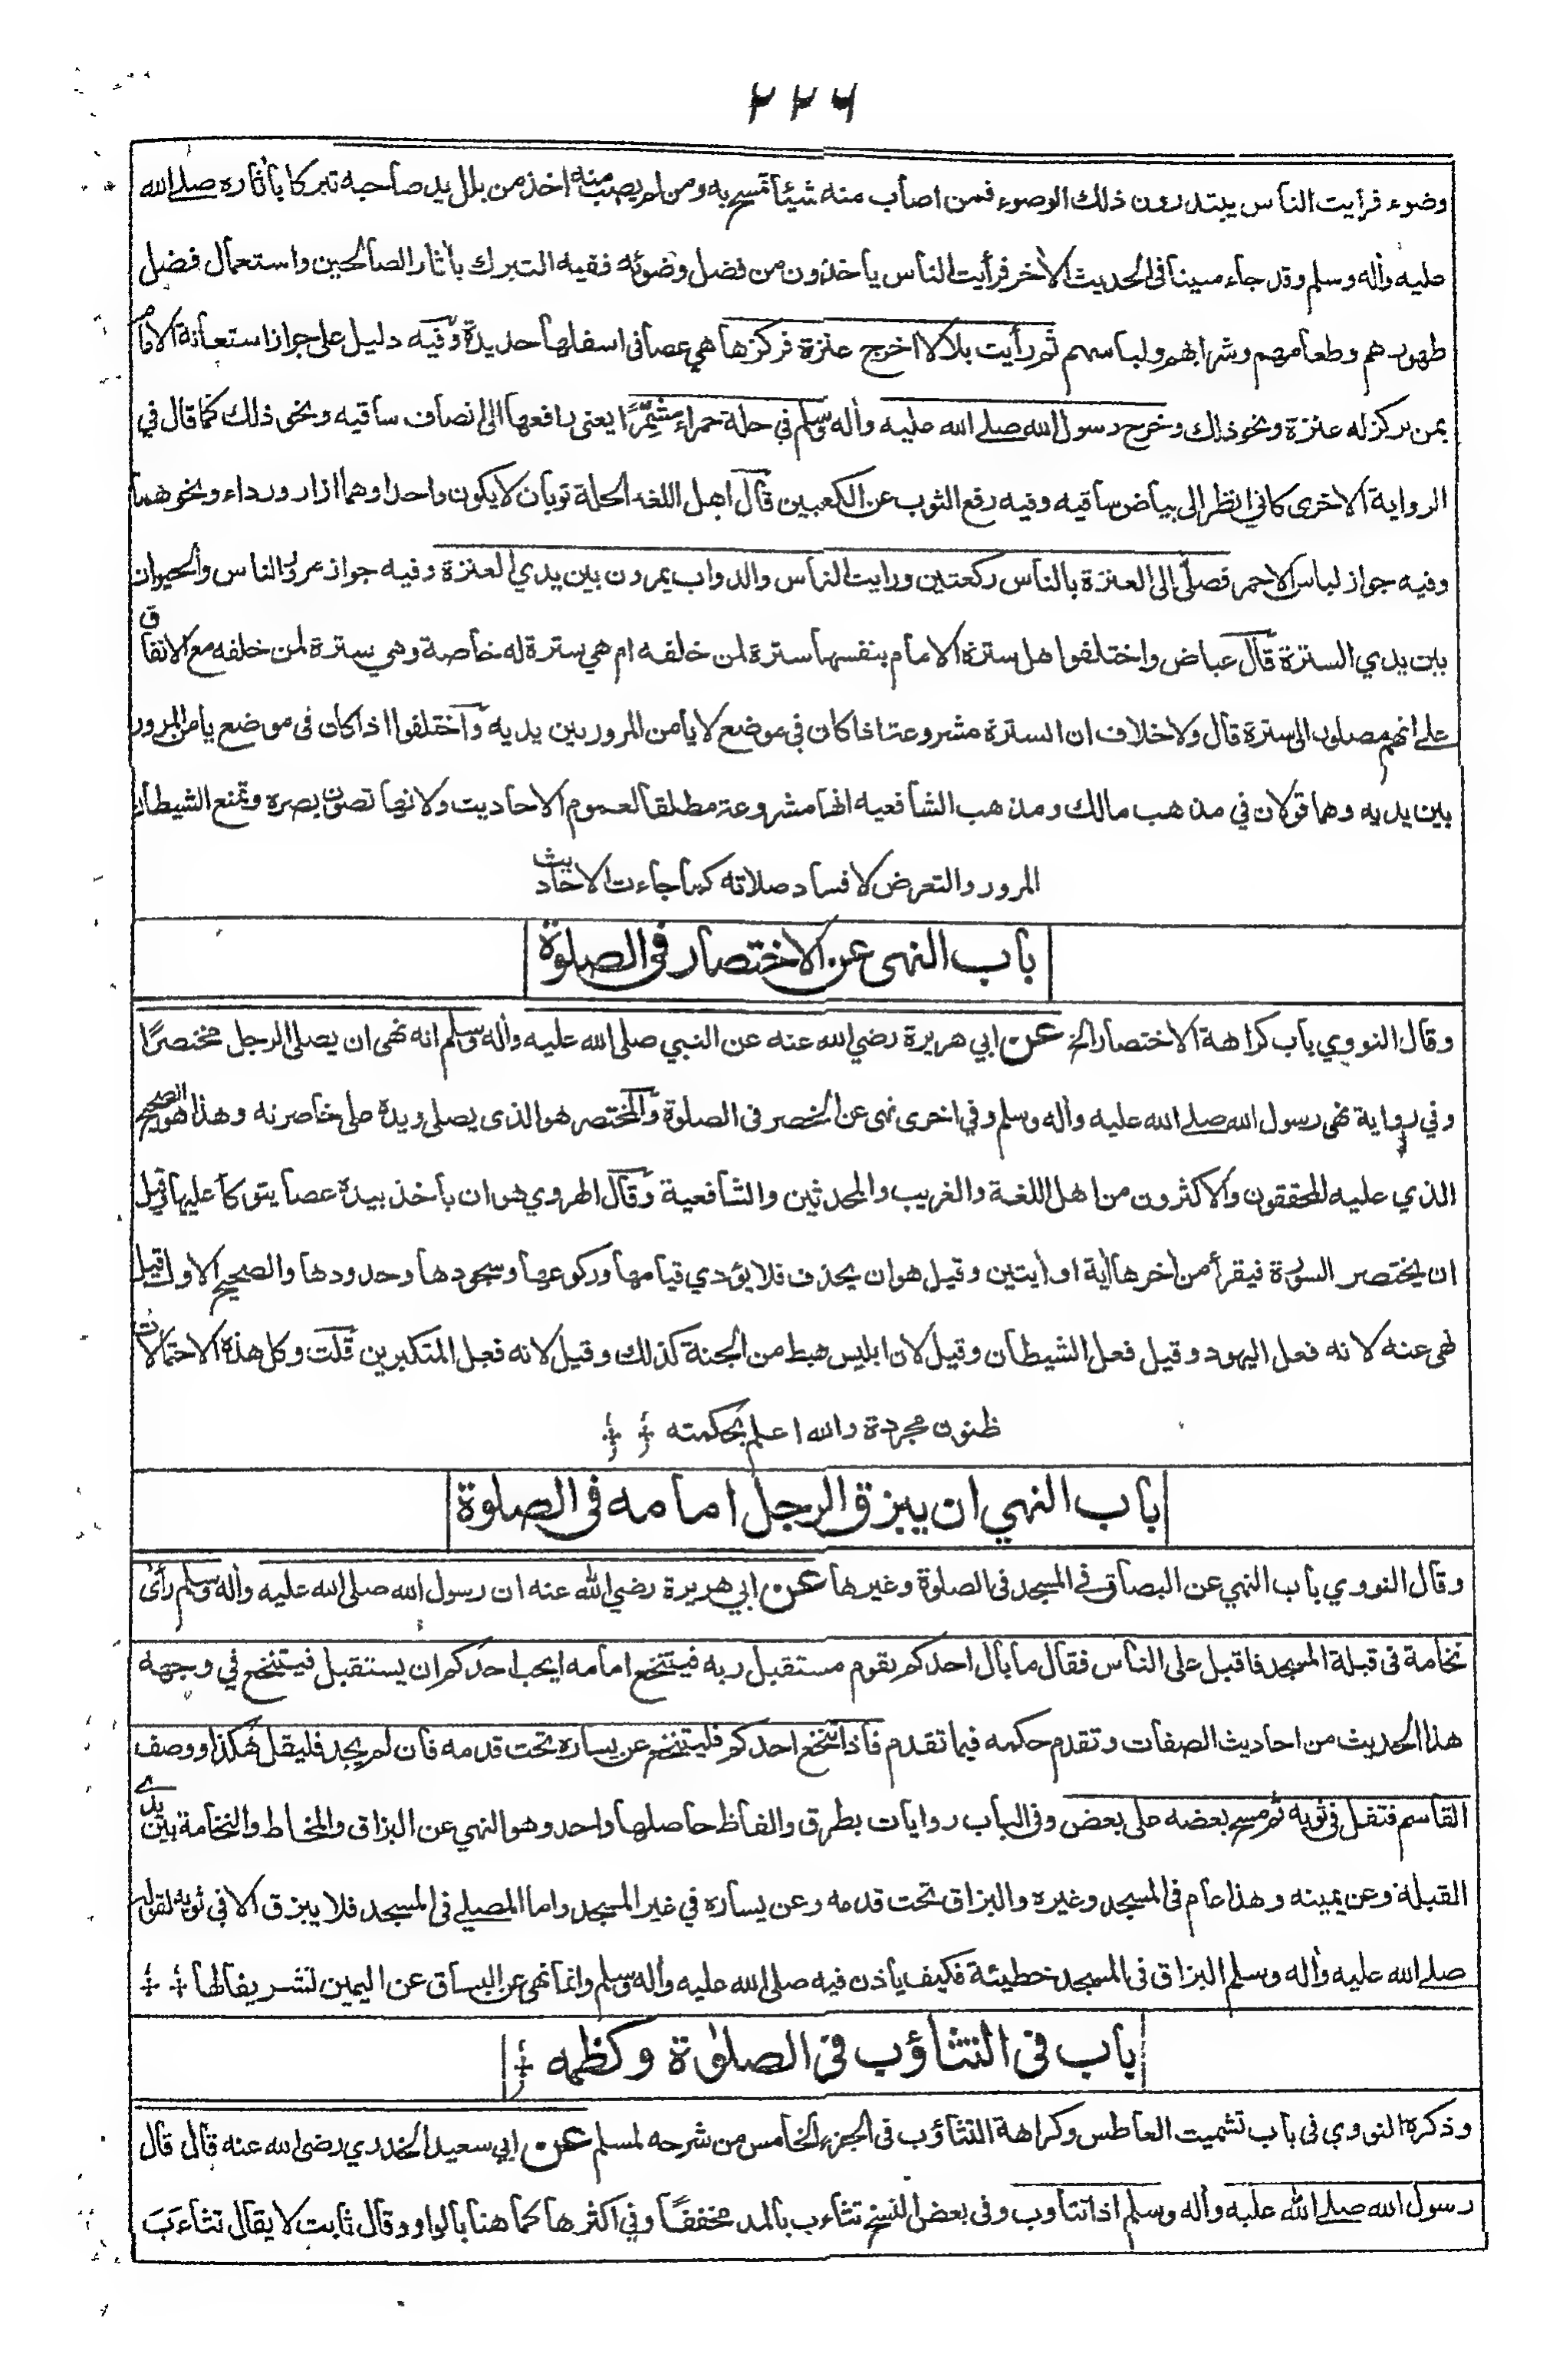 ۲۲۶
وضوء فرأيت الناس يبتدرون ذلك الوضوء فمن اصاب منه شيئا تمسح به ومن لم يصب منه اخذ من بلل يد صاحبه تبركا بأثاره صلے الله
عليه وأله وسلم وقد جاء مبينا فى الحديث الأخر فرأيت الناس يأخذون من فضل وضوئه ففيه التبرك بأثار الصالحين واستعمال فضل
طهورهم وطعامهم وشرابهم ولباسهم ثم رأيت بلالا اخرج عنزة فركزها هي عصا فى اسفلها حديدة وفيه دليل على جواز استعانة الامام
بمن يركز له عنزة ونحو ذلك وخرج رسول الله صلے الله عليه وأله وسلم في حلة حمراء مشمّرًا يعنى رافعها الى انصاف ساقيه ونحو ذلك كما قال في
الرواية الاخرى كانى انظر الى بياض ساقيه وفيه رفع الثوب عن الكعبين قال اهل اللغة الحلة ثوبان لا يكون واحدا وهما ازار ورداء ونحوهما
وفيه جواز لباس الاحمر فصلّى الى العنزة بالناس ركعتين ورايت الناس والدواب يمرون بين يدي العنزة وفيه جواز مرور الناس والحيوان
بين يدي السترة قال عياض واختلفوا هل سترة الامام بنفسها سترة لمن خلفه ام هي سترة له خاصة وهي سترة لمن خلفه مع الاتفاق
علے انهم مصلون الى سترة قال ولا خلاف ان السترة مشروعة اذا كان في موضع لا يأمن المرور بين يديه واختلفوا اذا كان فى موضع يأمن المرور
بين يديه وهما قولان في مذهب مالك ومذهب الشافعيه انها مشروعة مطلقا لعموم الاحاديث ولانها تصون بصره وتمنع الشيطان
المرور والتعرض لافساد صلاته كما جاءت الاحاديث
باب النهى عن الاختصار فى الصلوة
وقال النووي باب كراهة الاختصار الخ عن ابي هريرة رضي الله عنه عن النبي صلى الله عليه وأله وسلم انه نهى ان يصلى الرجل مختصرًا
وفي رواية نهى رسول الله صلے الله عليه وأله وسلم وفي اخرى نهى عن الخصر فى الصلوة والمختصر هو الذى يصلى ويده على خاصرته وهذا هو الصحيح
الذي عليه المحققون والاكثرون من اهل اللغة والغريب والمحدثين والشافعية وقال الهروي هو ان يأخذ بيده عصا يتوكأ عليها وقيل
ان يختصر السورة فيقرأ من اخرها أية او أيتين وقيل هو ان يحذف فلا يؤدي قيامها وركوعها وسجودها وحدودها والصحيح الاول قيل
نهى عنه لانه فعل اليهود وقيل فعل الشيطان وقيل لان ابليس هبط من الجنة كذلك وقيل لانه فعل المتكبرين قلت وكل هذه الاحتمالات
ظنون مجردة والله اعلم بحكمته
باب النهي ان يبزق الرجل امامه فى الصلوة
وقال النووي باب النهي عن البصاق فے المسجد فى الصلوة وغيرها عن ابي هريرة رضي الله عنه ان رسول الله صلى الله عليه وأله وسلم رأى
نخامة فى قبلة المسجد فاقبل على الناس فقال ما بال احدكم يقوم مستقبل ربه فيتنخع امامه ايحب احدكم ان يستقبل فيتنخع في وجهه
هذا الحديث من احاديث الصفات وتقدم حكمه فيما تقدم فأذا تنخع احدكم فليتنخع عن يساره تحت قدمه فان لم يجد فليقل هكذا ووصف
القاسم فتفل فى ثوبه ثم مسح بعضه على بعض وفى الباب روايات بطرق والفاظ حاصلها واحد وهو النهي عن البزاق والمخاط والنخامة بين يدے
القبلة وعن يمينه وهذا عام فى المسجد وغيره والبزاق تحت قدمه وعن يساره في غير المسجد واما المصلے فى المسجد فلا يبزق الا في ثوبه لقوله
صلے الله عليه وأله وسلم البزاق فى المسجد خطيئة فكيف يأذن فيه صلى الله عليه وأله وسلم وانما نهى عن البساق عن اليمين تشريفا لها
باب فى التثاؤب فى الصلوٰة وكظمه
وذكره النووي فى باب تشميت العاطس وكراهة التثاؤب فى الجزء الخامس من شرحه لمسلم عن ابي سعيد الخدري رضى الله عنه قال قال
رسول الله صلے الله عليه وأله وسلم اذا تثاوب وفى بعض النسخ تثاءب بالمد مخففًا وفي اكثرها كما هنا بالواو وقال ثابت لا يقال تثاءَبَ